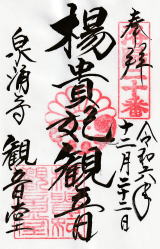 奉拝
令和六年
十二月二十二日
楊貴妃観音
泉涌寺
観音堂